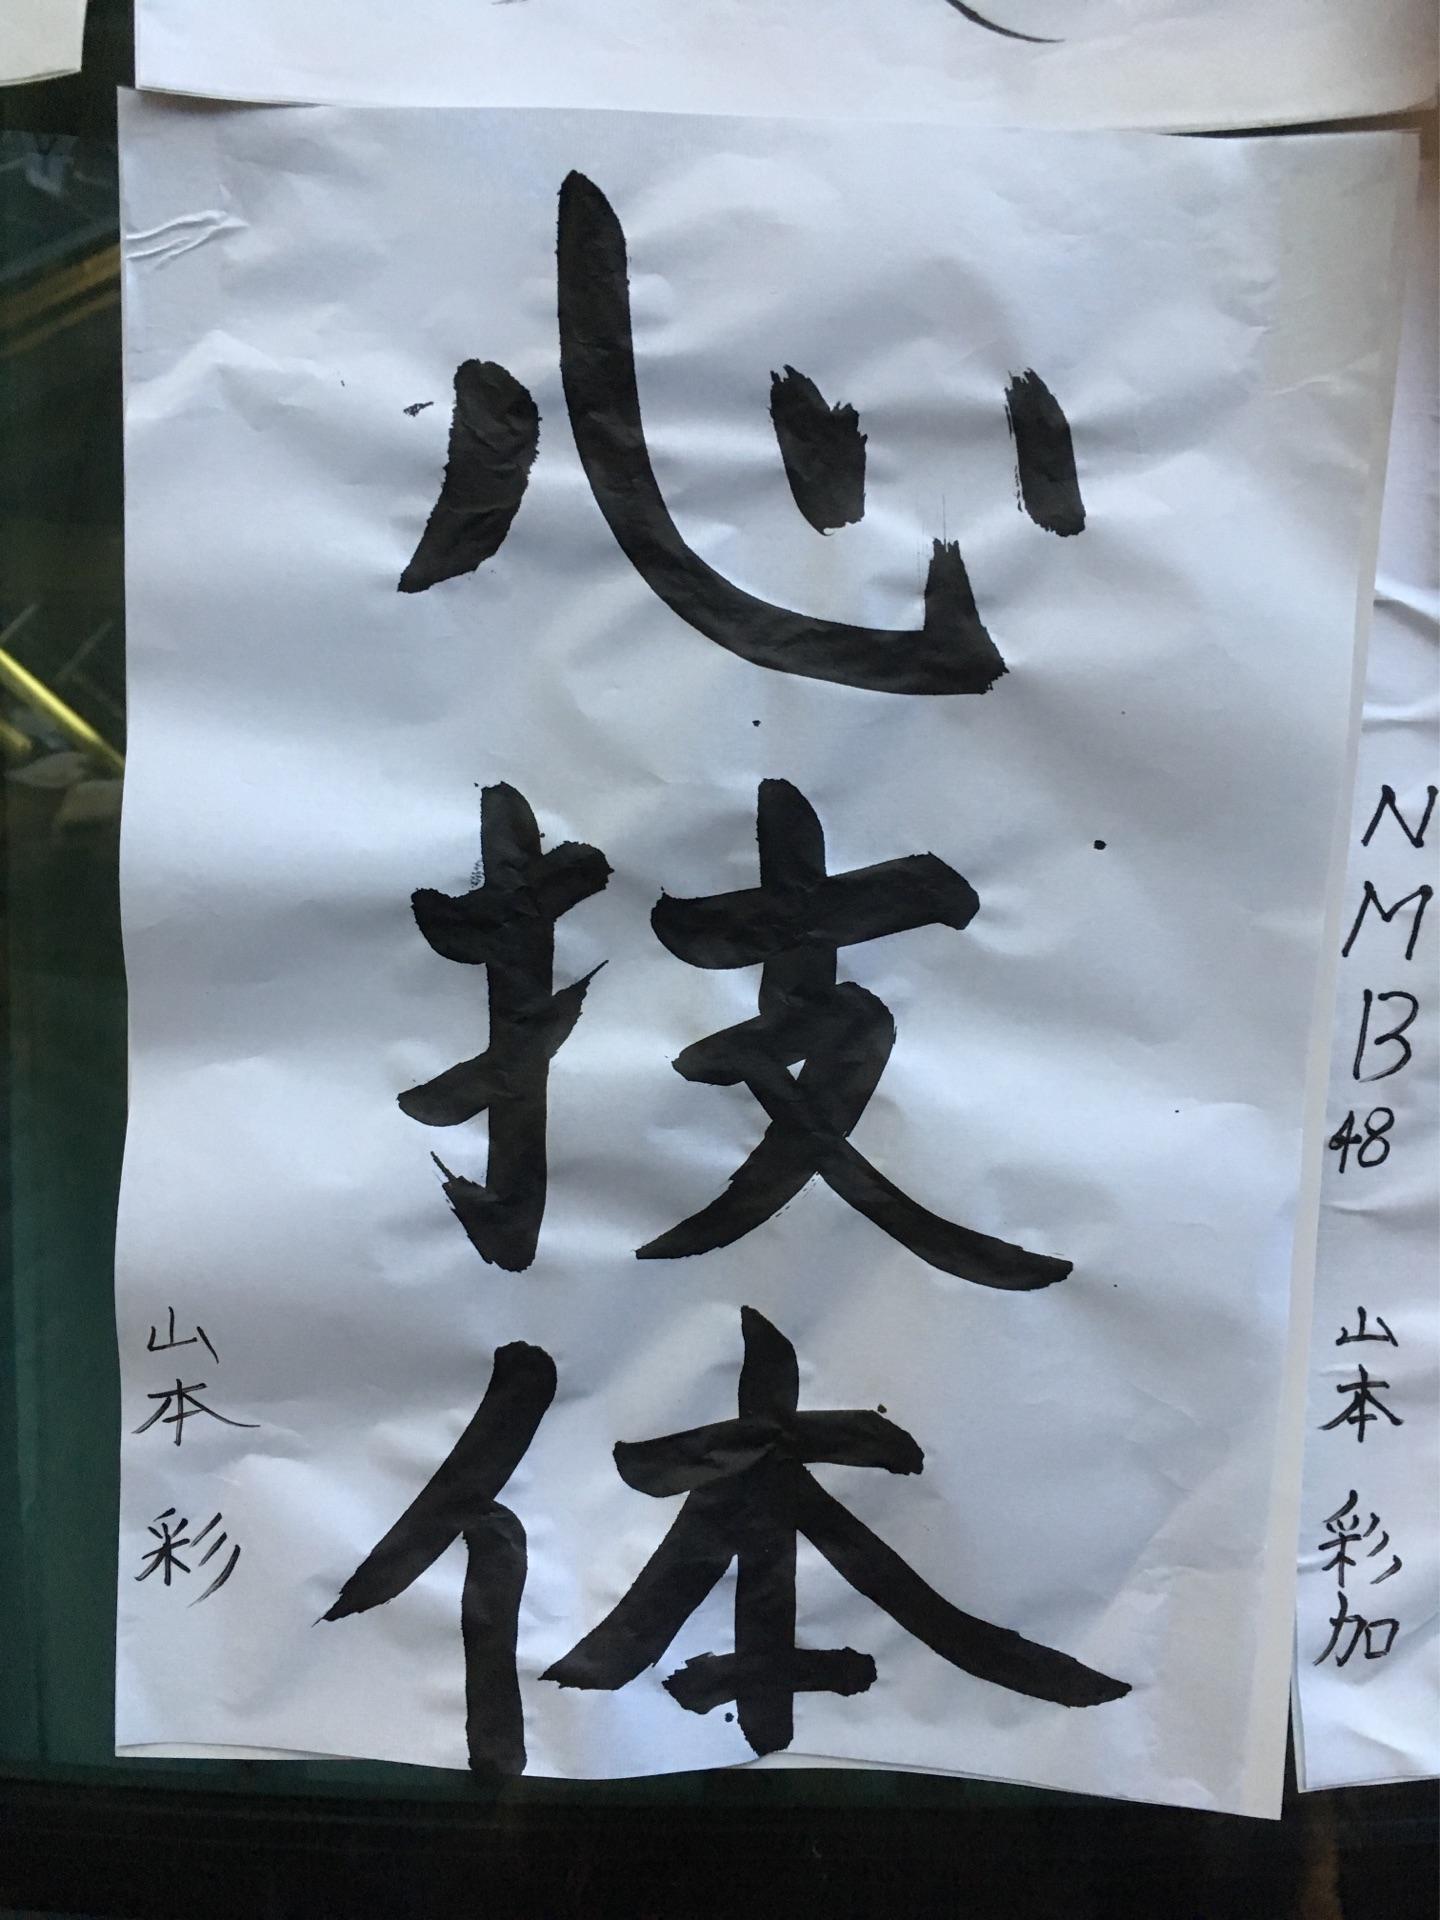 心技体
山本 彩
NMB48 山本 彩加